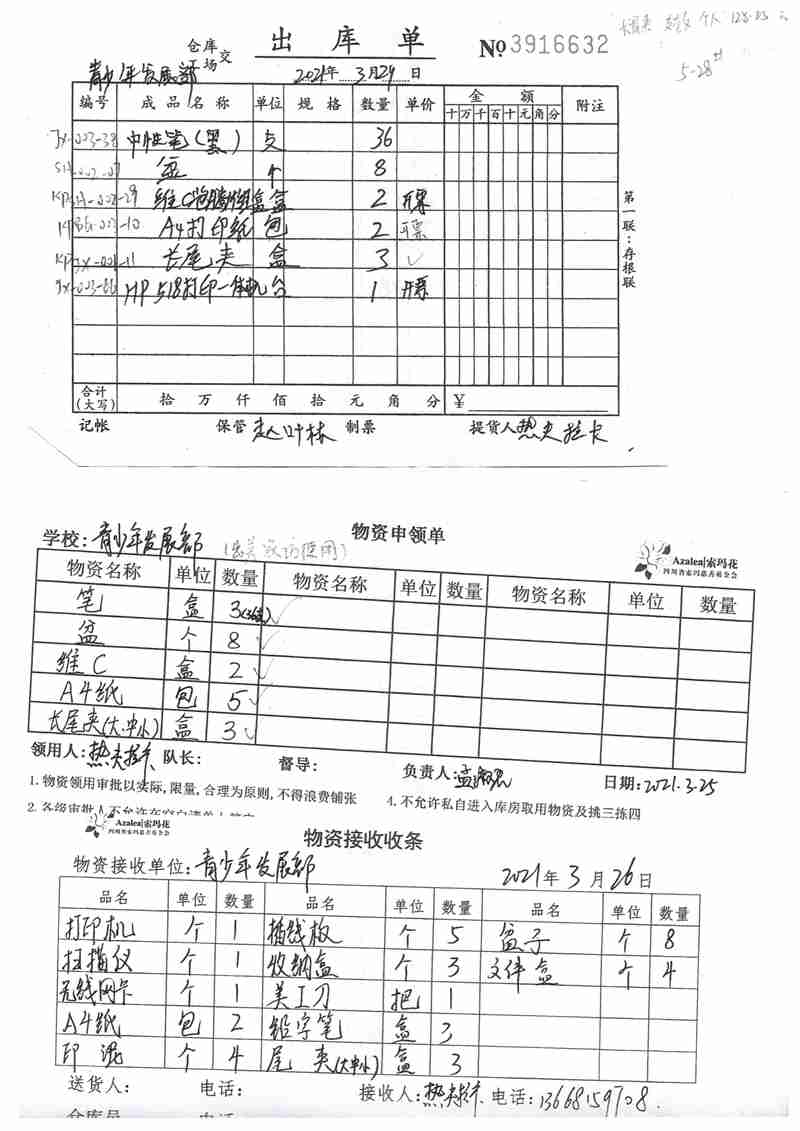 128.03
5-28
仓库 交 出库单 No 3916632
市场
青少年发展部 2021年3月29日
编号 成品名称 单位 规格 数量 单价 金额 附注
十 万 千 百 十 元 角 分
JX-003-38 中性笔(黑) 支 36
盆 个 8
维C 盒 2 开票
A4打印纸 包 2 开票
长尾夹 盒 3 ✓
HP 518打印一体机 台 1 开票
合计(大写) 拾 万 仟 佰 拾 元 角 分 ¥
记帐 保管 赵叶林 制票 提货人 热夫拉卡
第一联:存根联
物资申领单
学校: 青少年发展部
Azalea|索玛花
四川省索玛慈善基金会
物资名称 单位 数量 物资名称 单位 数量 物资名称 单位 数量
笔 盒 3 ✓
盆 个 8 ✓
维C 盒 2 ✓
A4纸 包 5 ✓
长尾夹(大.中.小) 盒 3 ✓
领用人: 队长: 督导: 负责人: 日期: 2021.3.25
1.物资领用审批以实际,限量,合理为原则,不得浪费铺张 4.不允许私自进入库房取用物资及挑三拣四
Azalea|索玛花
四川省索玛慈善基金会
物资接收收条
物资接收单位: 青少年发展部 2021年3月26日
品名 单位 数量 品名 单位 数量 品名 单位 数量
打印机 个 1 插线板 个 5 盆子 个 8
扫描仪 个 1 收纳盒 个 3 文件盒 个 4
无线网卡 个 1 美工刀 把 1
A4纸 包 2 铅字笔 盒 3
印泥 个 4 尾夹(大中小) 盒 3
送货人: 电话: 接收人: 电话: 13668159708.
仓库员